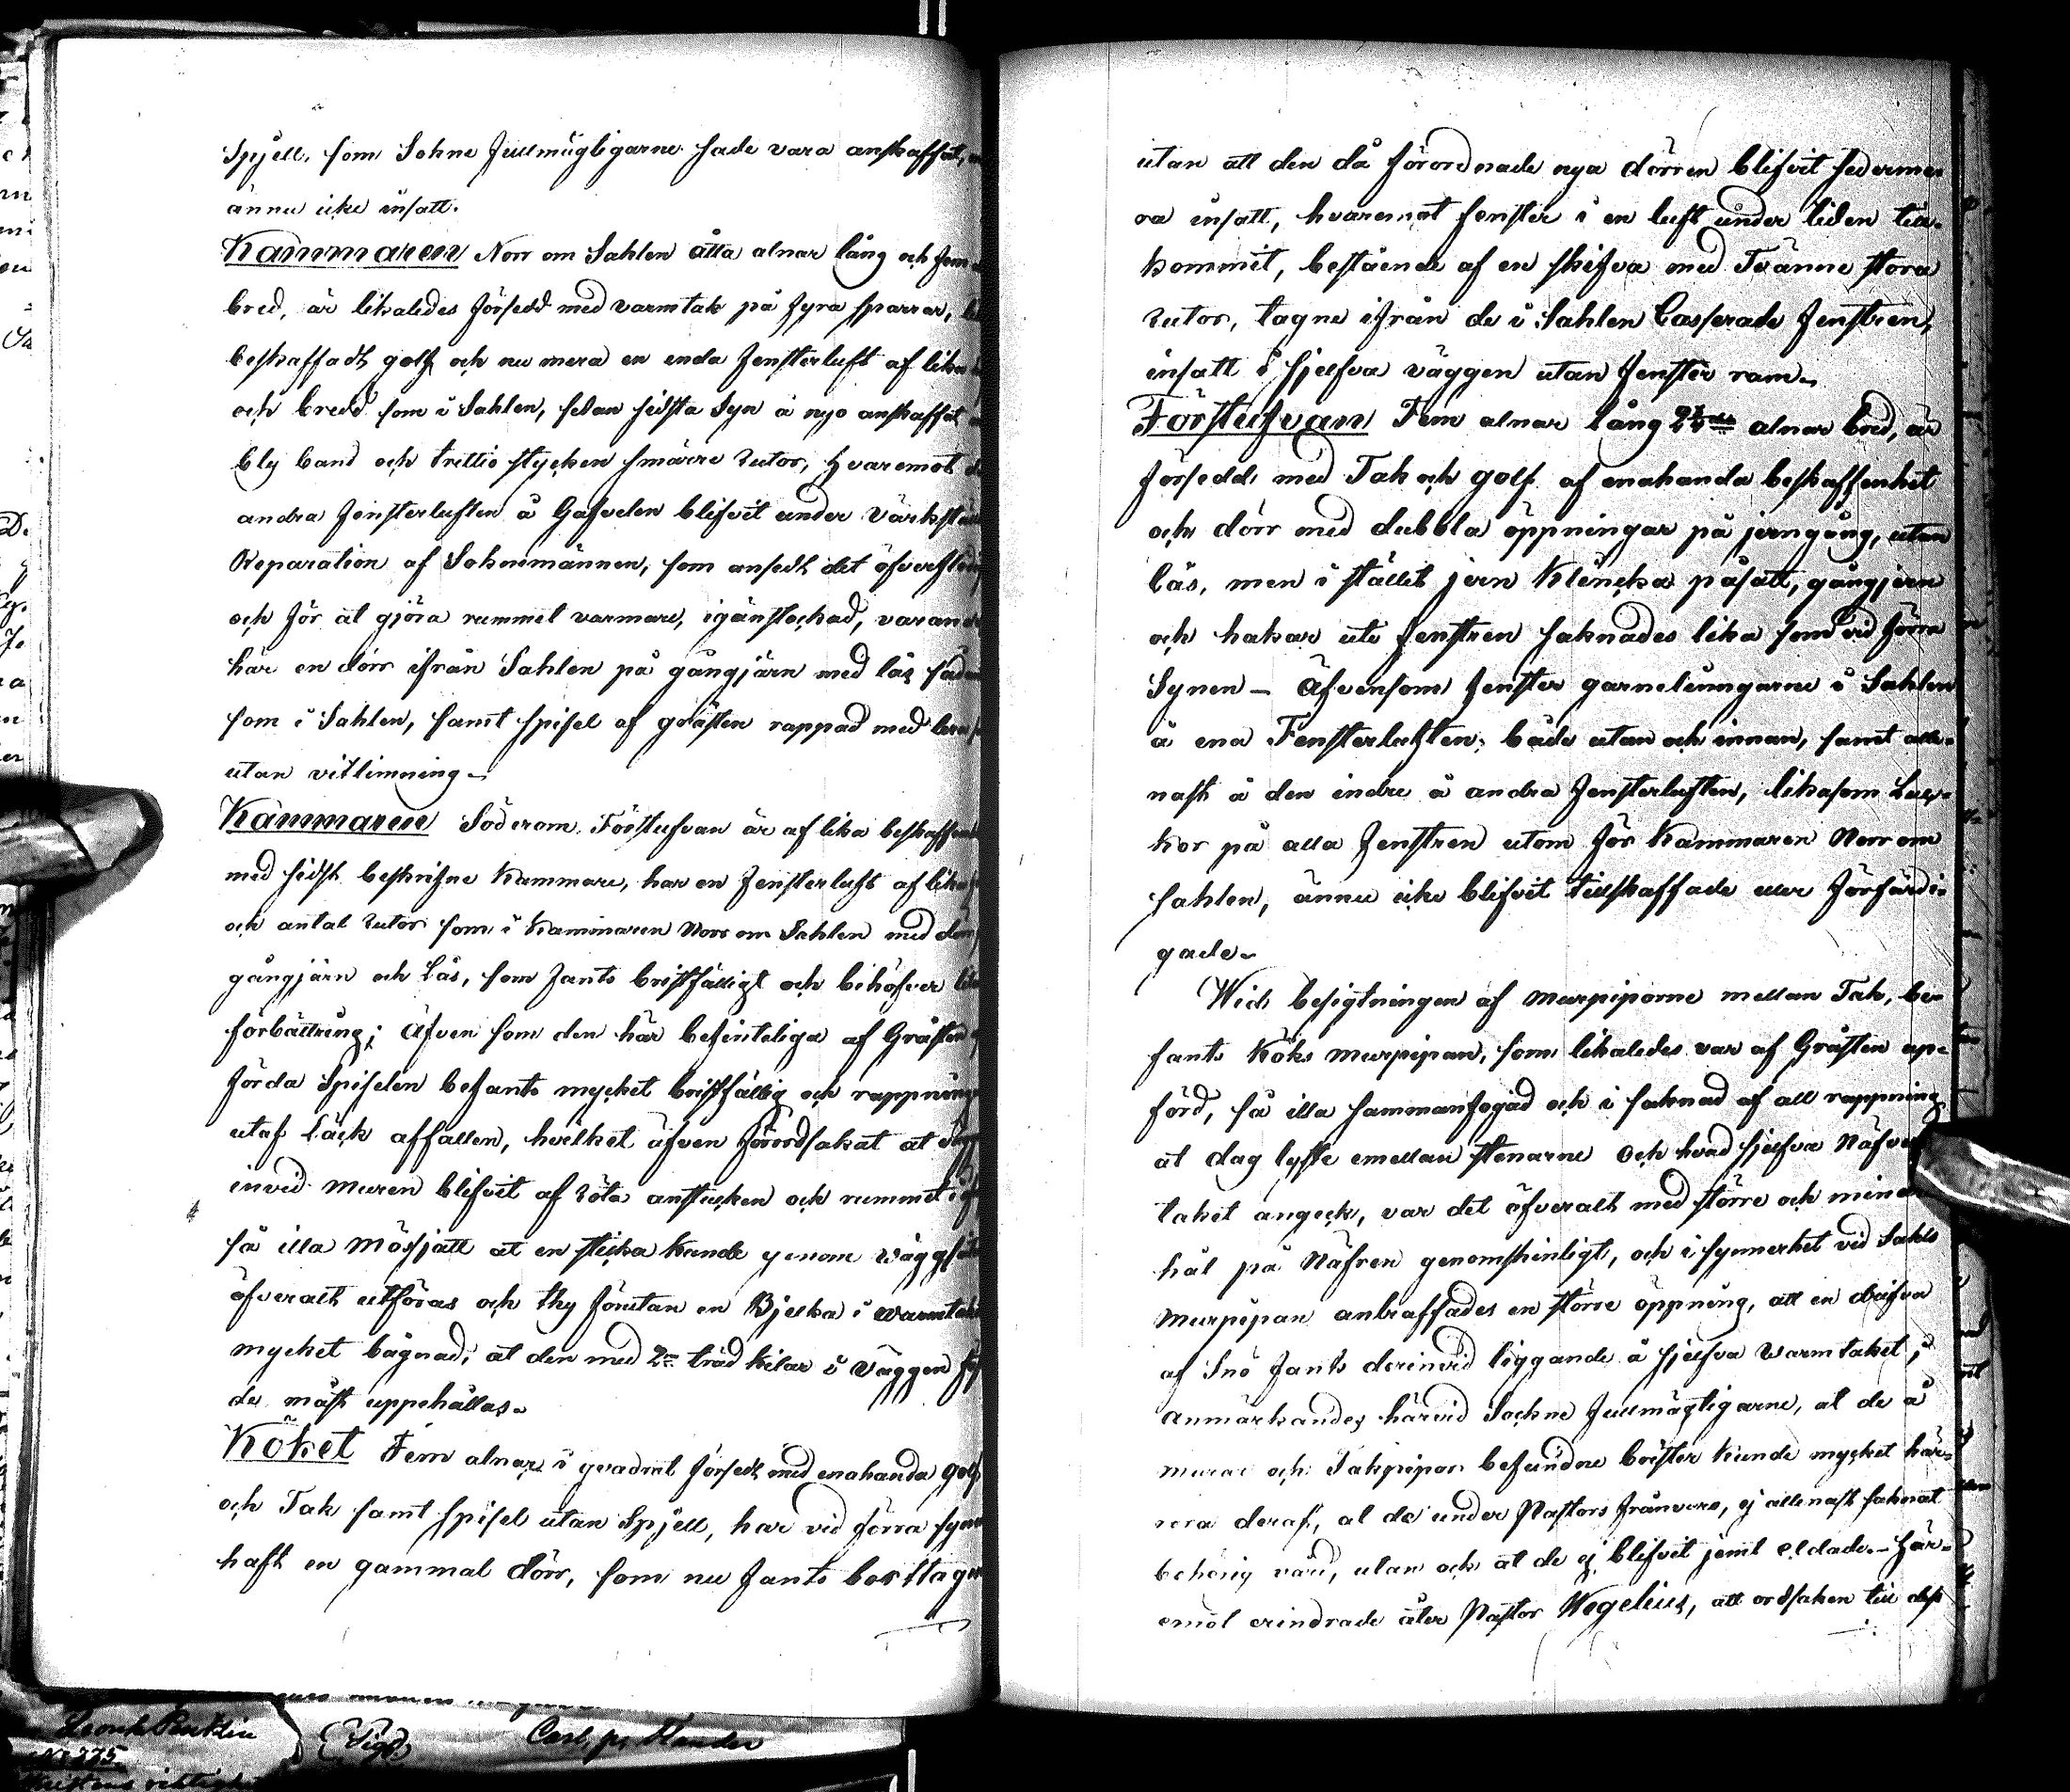 Spjell, som Sokne fullmägtigarne sade vara anskaffat,
ännu icke insatt.
Kammaren Norr om Sahlen åtta alnar lång och fem
bred, är likaledes försedd med varmtak på fyra sparrar,
beskaffadt golf och nu mera en enda fensterluft af lika
och bredd som i Sahlen, sedan sidsta Syn å nyo anskaffat
bly band och trettio stycken smärre Rutor, hvaremot
andra fensterluften å Gafvelen blifvit under värkstäld
Reparation af Soknemännen, som ansedt det öfverflödigt
och för at gjöra rummet varmare, igänstockad, varande
här en dörr ifrån Sahlen på gångjärn med lås sådant
som i Sahlen, samt spisel af gråsten rappad med lera
utan vitlimning.
Kammaren Söder om Förstufvan är af lika beskaffenhet
med sidst beskrifne Kammare, har en fensterluft af lika
och antal Rutor som i Kammaren Norr om Sahlen med dörr
gångjärn och Lås, som fants bristfälligt och behöfver
förbättring; Äfven som den här befinteliga af Gråsten
förda Spiselen befants mycket bristfällig och rappningen
utaf Läck affallen, hvilket äfven förordsakat at
invid muren blifvit af röta anstucken och rummet
så illa mossjatt at en sticka kunde genom
öfveralt utföras och thy förutan en Bjelka i warmtaket
mycket bågnad, at den med 2ne träd kilar i Väggen
de måst uppehållas.
Köket Fem alnar i qvadrat försedt med enahanda Golf
och Tak samt spisel utan Spjell, har vid förra syn
haft en gammal dörr, som nu fants borttagen
utan att den då förordnade nya dörren blifvit sedermer
ra insatt, hvaremot fenster i en luft under tiden till-
kommit, bestående af en skifva med Tvänne stora
Rutor, tagne ifrån de i Sahlen Casserade fenstren,
insatt i sjelfva väggen utan fenster ram.
Förstufvan Fem alnar lång 2½ alnar bred, är
försedd med Tak och golf af enahanda beskaffenhet
och dörr med dubbla öppningar på jerngång, utan
lås, men i stället jern Klincka påsatt, gångjern
och hakar uti fenstren saknades lika som vid förra
Synen – Äfvensom fenster garneringarne i Sahlen
å ena Fensterluften, både utan och innan, samt alle-
nast å den indre å andra fensterluften, likasom Luc-
kor på alla fenstren utom för Kammaren Norr om
sahlen, ännu icke blifvit tillskaffade eller förfärdi-
gade.
Wid besigtningen af murpiporne mellan Tak, be-
fants Köks murpipan, som likaledes var af Gråsten up-
förd, så illa sammanfogad och i saknad af all rappning
at dag lyste emellan stenarne och hvad sjelfva Näfver
taket angeck, var det öfveralt med större och mindre
hål på Näfren genomskinligt, och i synnerhet vid Sahls
Murpipan anträffades en större öppning, att en drifva
af Snö fants derinvid liggande å sjelfva Warmtaket,
anmärkandes härvid Sockne fullmägtigarne, at de å
murar och Takpipor befundne brister kunde mycket här-
röra deraf, at de under Pastors frånvaro, ej allenast saknat
behörig vård, utan ock at de ej blifvit jemt eldade. – Här-
emot erindrade åter Pastor Wegelius, att ordsaken till